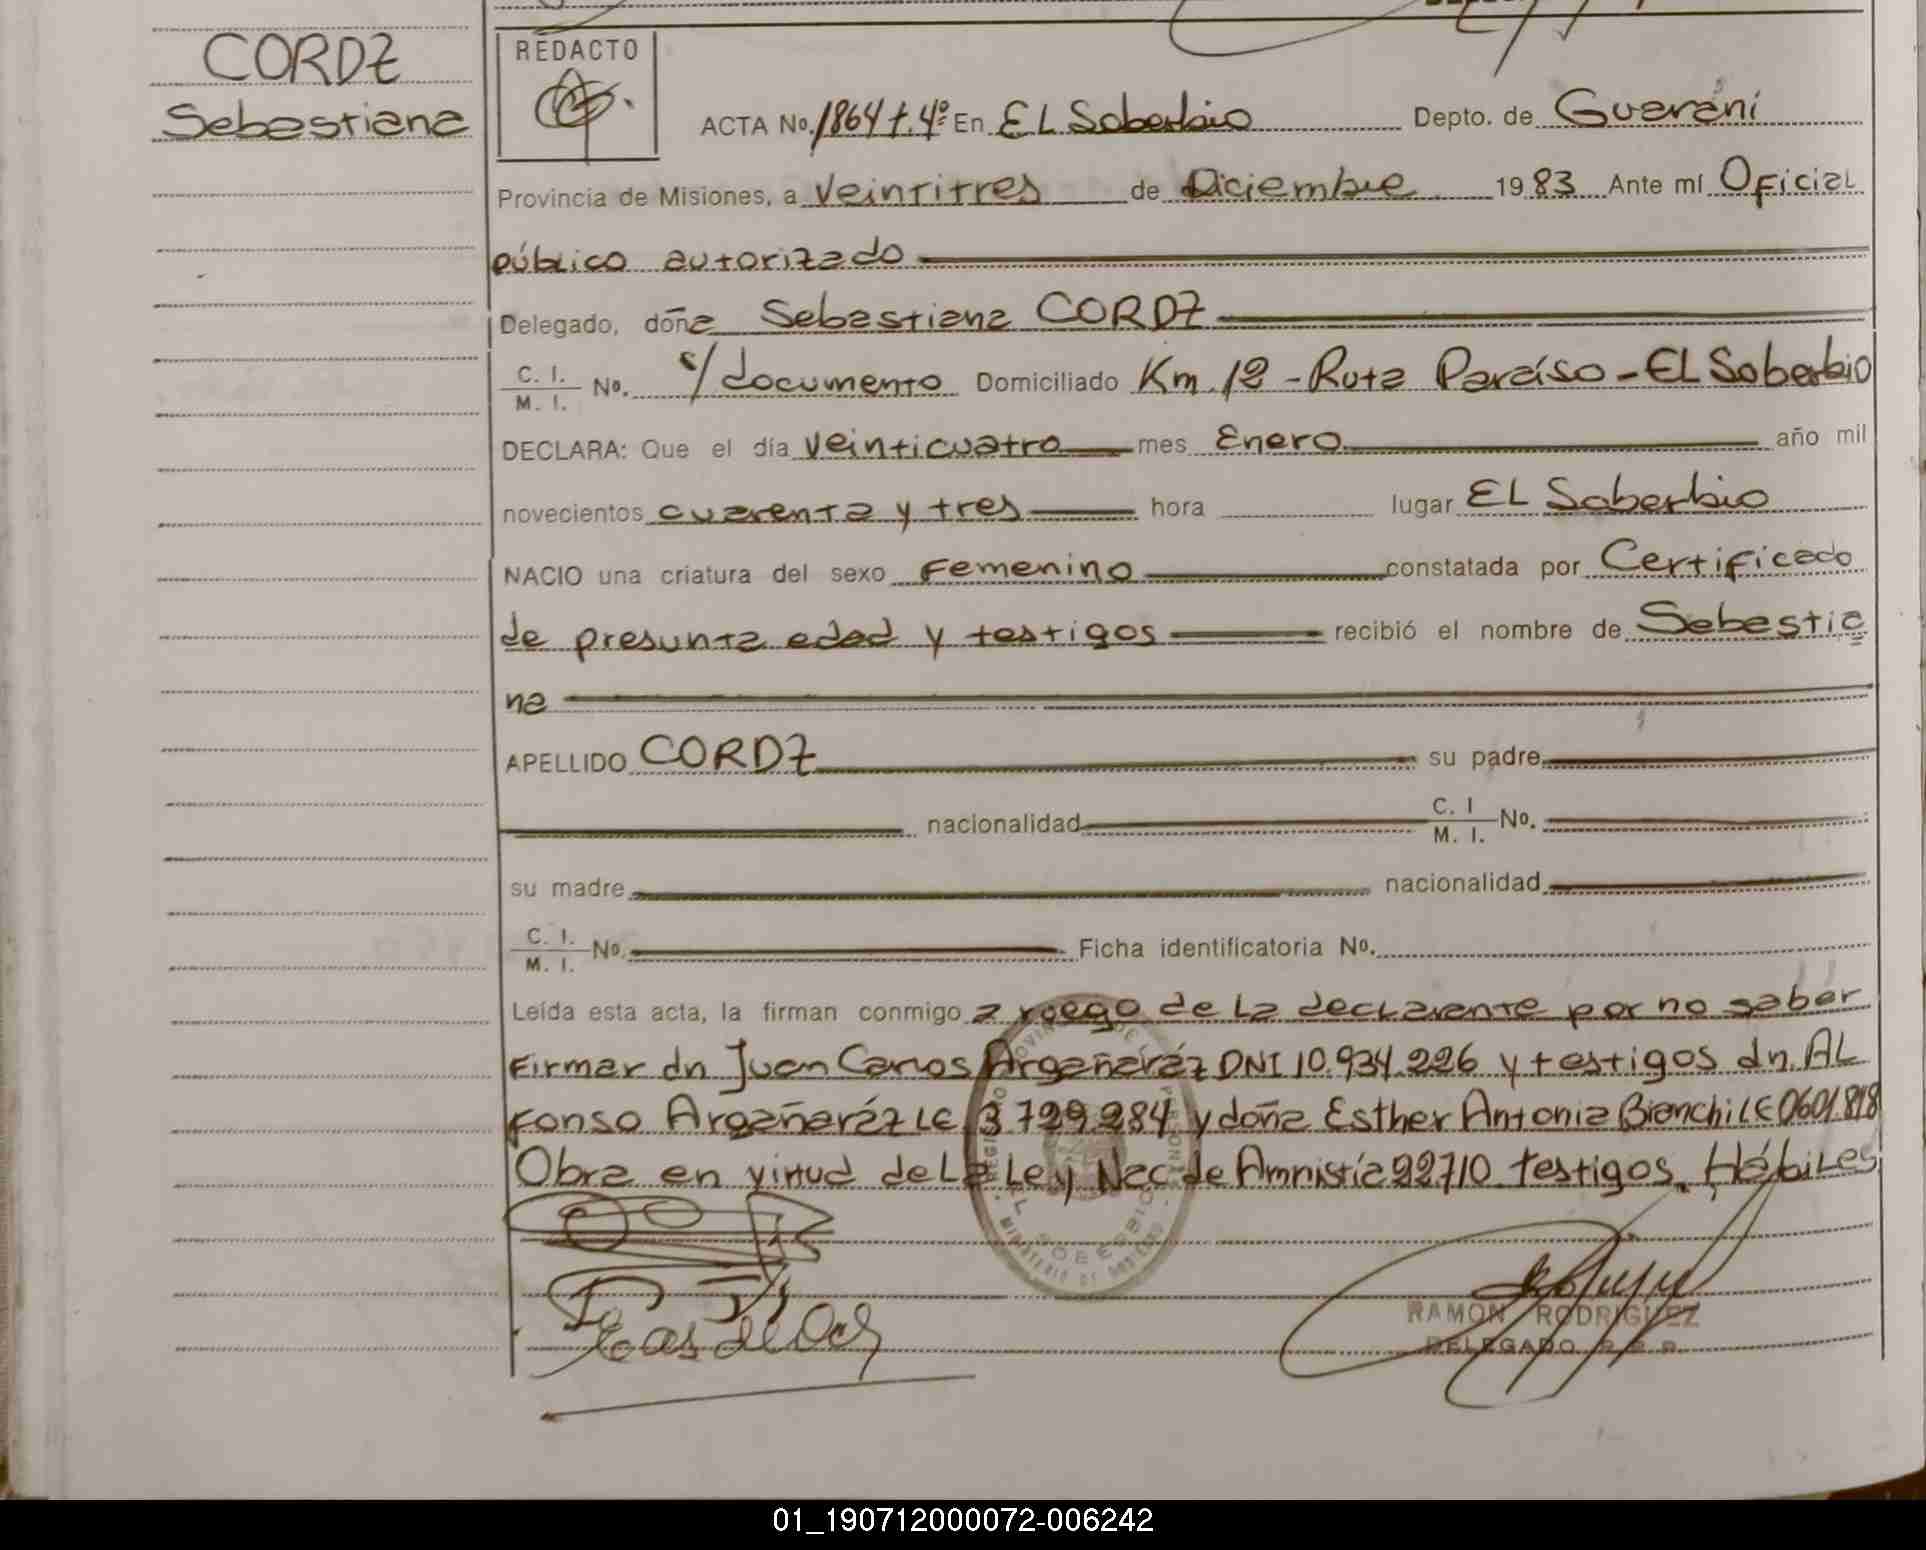 CORDZ
Sebastiana
REDACTO
ACTA No. 1864 t. 4º En EL Soberbio Depto. de Guaraní
Provincia de Misiones, a veintitres de Diciembre 1983 Ante mí Oficial
público autorizado
Delegado, doña Sebastiana CORDZ
C. I.
M. I. No. s/documento Domiciliado Km.12 - Ruta Paraíso - EL Soberbio
DECLARA: Que el día veinticuatro mes Enero año mil
novecientos cuarenta y tres hora lugar EL Soberbio
NACIO una criatura del sexo Femenino constatada por Certificado
de presunta edad y testigos recibió el nombre de Sebastia
na
APELLIDO CORDZ su padre
nacionalidad C. I
M. I. No.
su madre nacionalidad
C. I.
M. I. No. Ficha identificatoria No.
Leída esta acta, la firman conmigo a ruego de la declarante por no saber
Firmar dn Juan Carlos Argañaráz DNI 10.934.226 y testigos dn. AL
fonso Argañaráz LE 3729.284 y doña Esther Antonia Bianchi LE 0601.818
Obra en virtud de La Ley Nac de Amnistía 22710 testigos Hábiles
RAMON RODRIGUEZ
DELEGADO
01_190712000072-006242